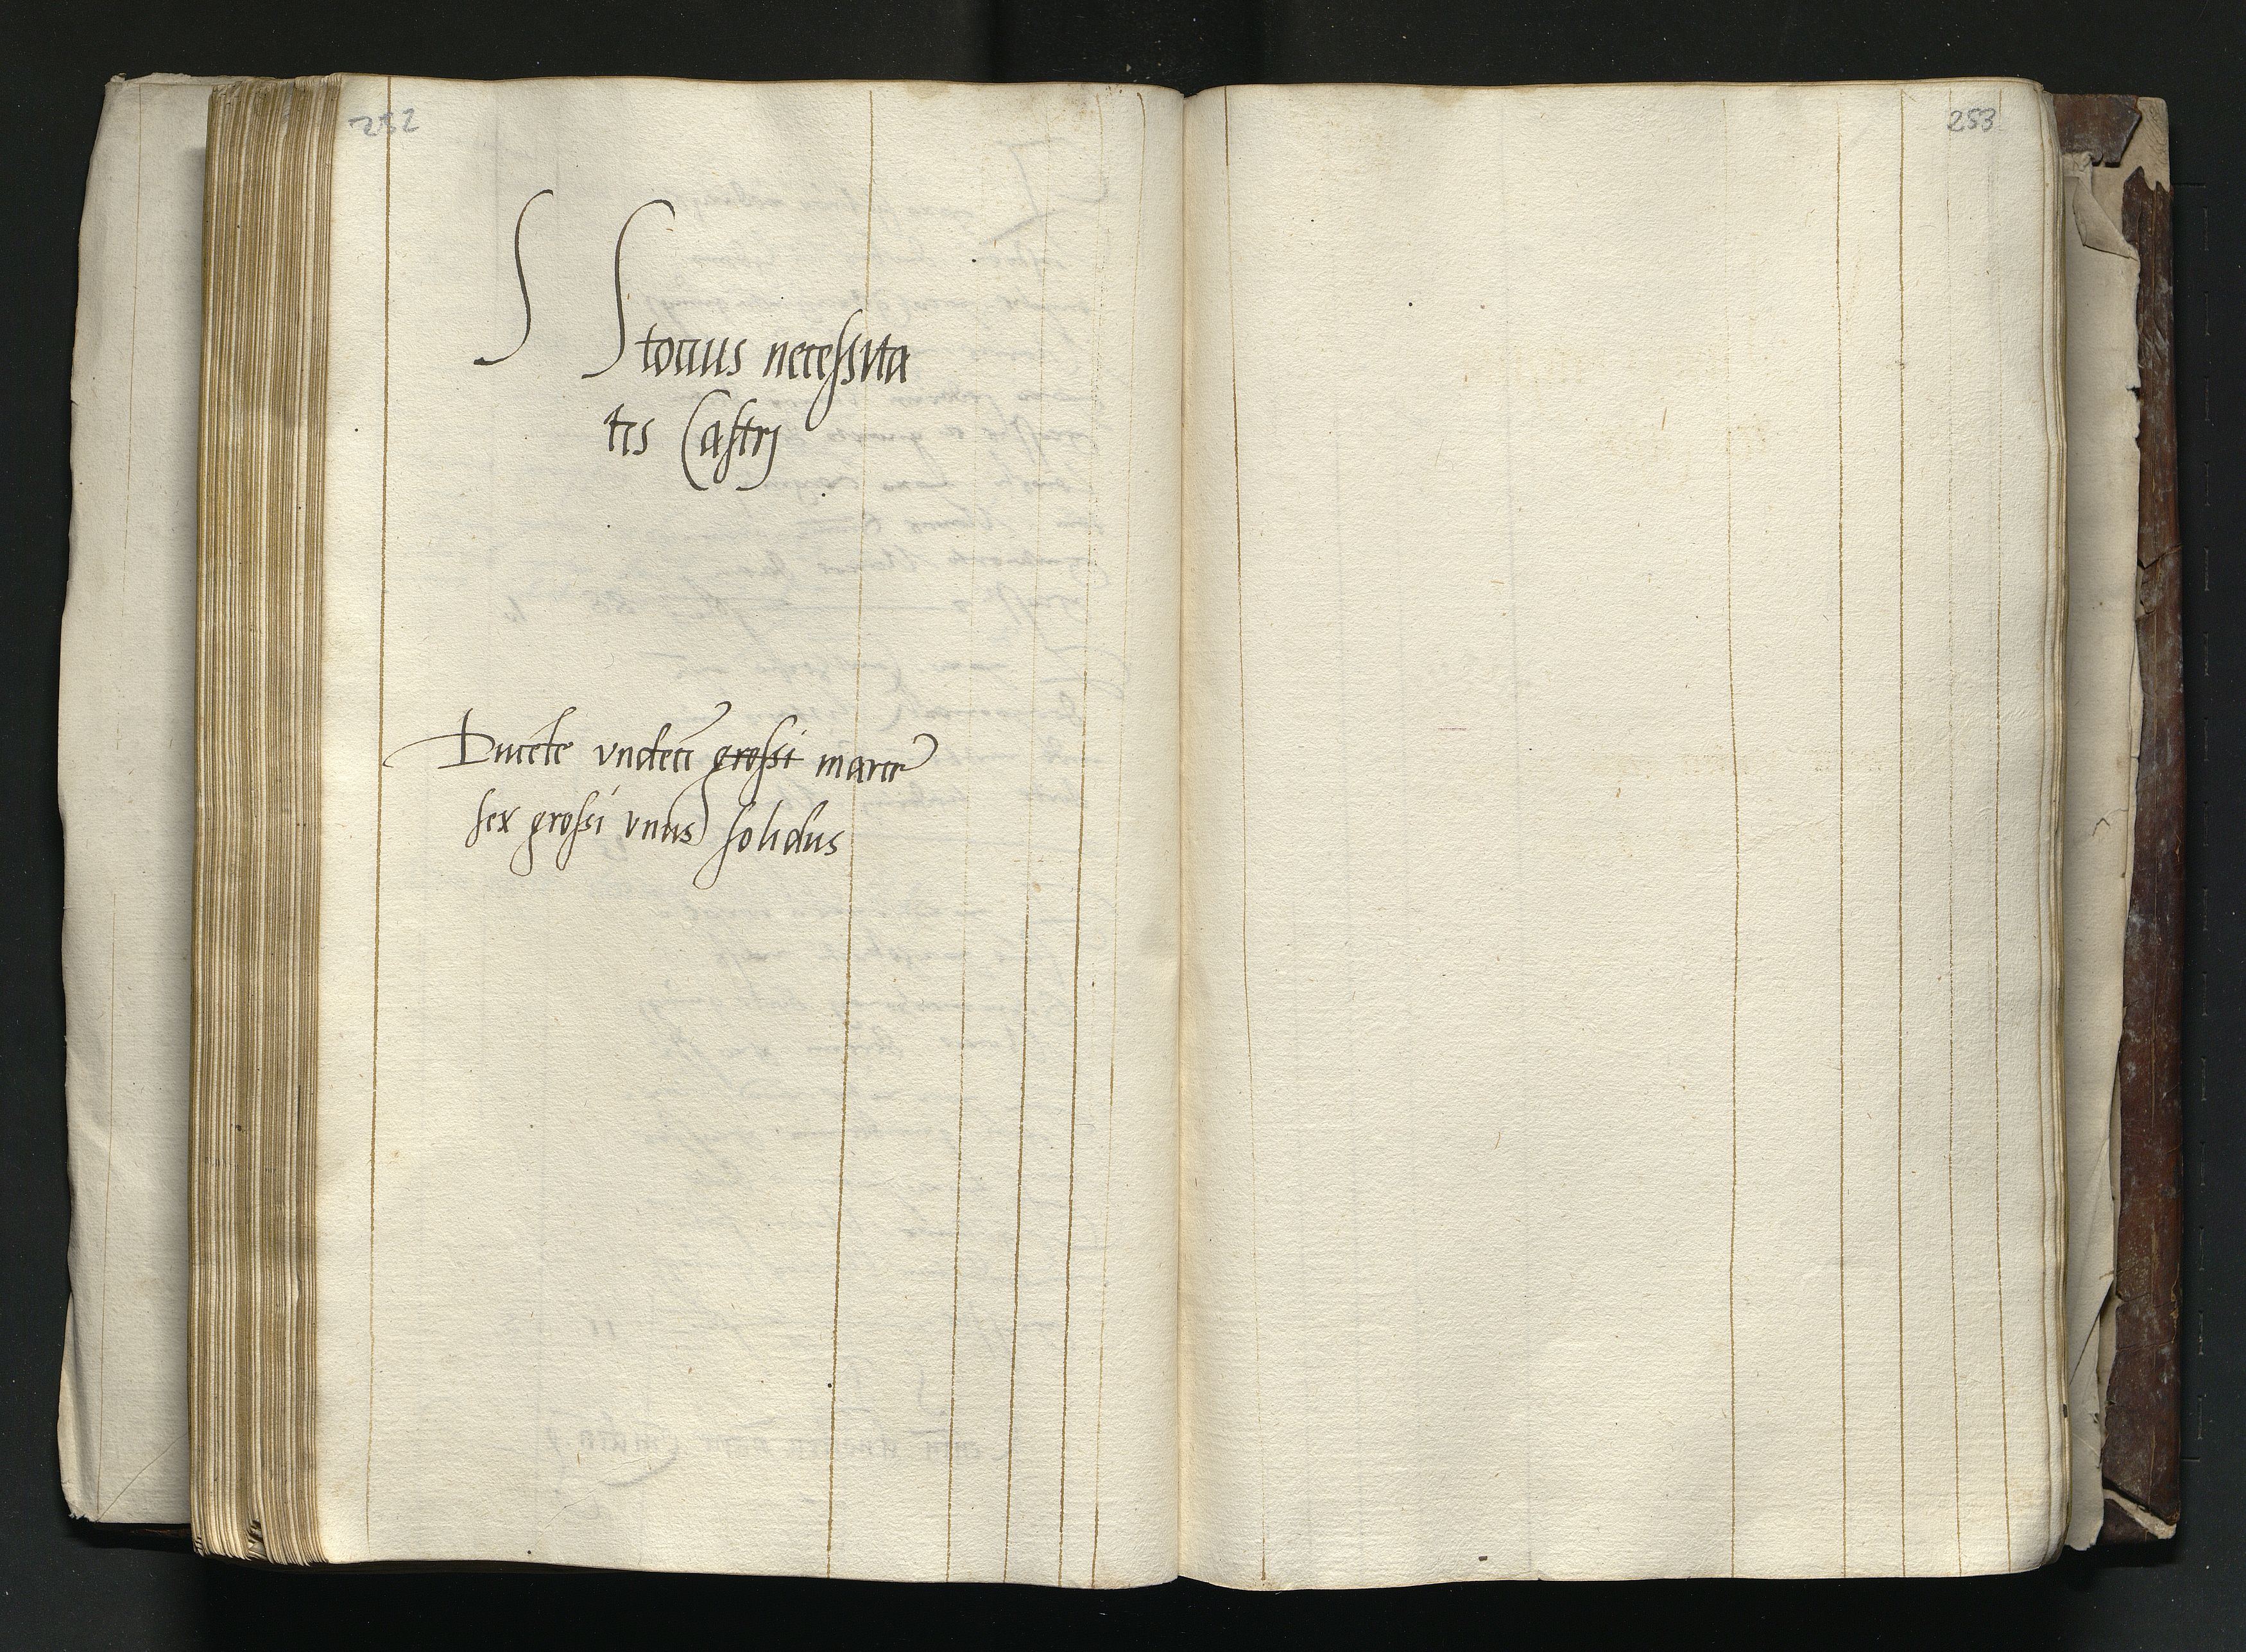 252
S S totius necessita
tis Castrj
Ducente vndeci grossi marce
sex grossi vnus solidus
253